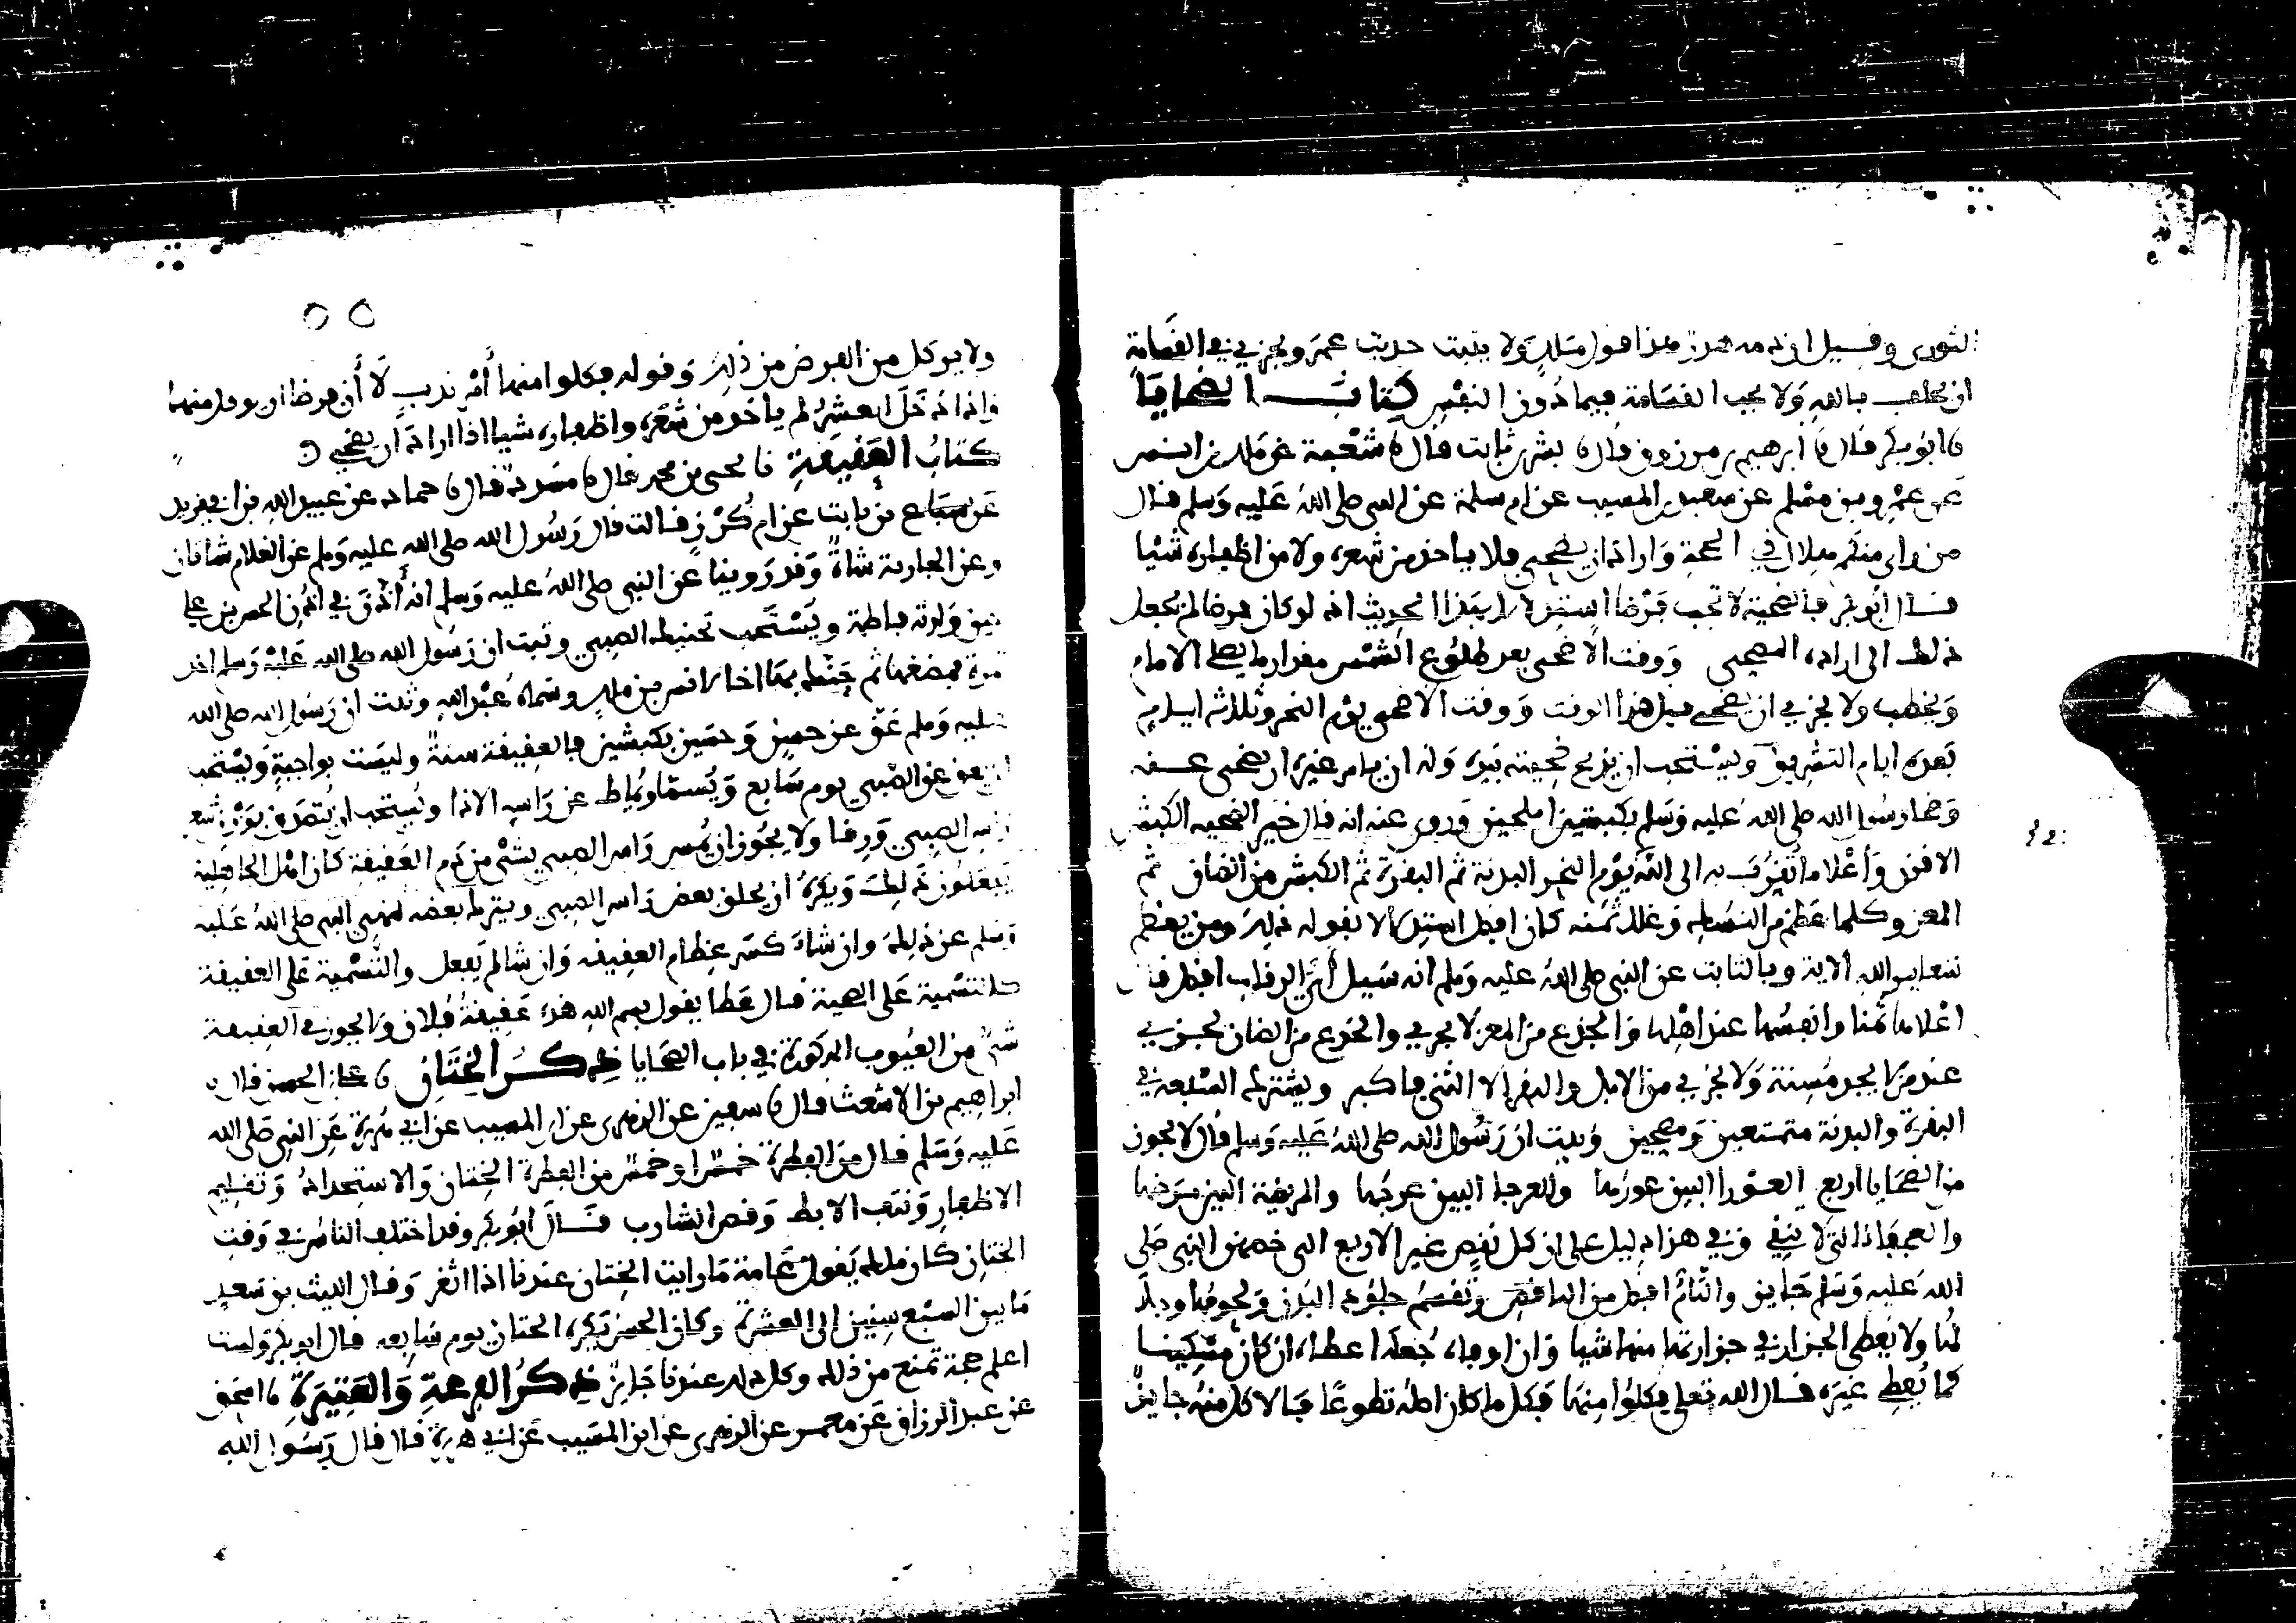 الثورى وقيل ان دمه هدر هذا قول ملك ولا يثبت حديث عمر ويجزي في القسامة
ان يحلف بالله ولا يجب القسامة فيما دون النفس كتاب الضحايا
نا ابو بكر قال نا ابرهيم بن مرزوق قال نا بشر بن ثابت قال نا شعبة عن ملك بن انس
عن عمرو بن مسلم عن سعيد بن المسيب عن ام سلمة عن النبى صلى الله عليه وسلم قال
من راى منكم هلال ذي الحجة واراد ان يضحي فلا ياخذ من شعره ولا من اظفاره شيا
قال ابو بكر فالضحية لا تجب فرضا استدلالا بهذا الحديث اذ لو كان فرضا لم يجعل
ذلك الى اراده المضحى ووقت الاضحى بعد طلوع الشمس مقدار ما يصلي الامام
ويخطب ولا يجزي ان يضحي قبل هذا الوقت ووقت الاضحى يوم النحر وثلاثه ايام
بعده ايام التشريق ويستحب ان يذبح ضحيته بيده وله ان يامر غيره ان يضحى عنه
وضحا رسول الله صلى الله عليه وسلم بكبشين املحين وروى عنه انه قال خير الضحيه الكبش
الاقرن واعلا ما تقرب به الى الله يوم النحر البدنة ثم البقرة ثم الكبش من الضان ثم
المعز وكلما عظم من النسايك وغلا ثمنه كان افضل استدلالا بقوله ذلك ومن يعظم
شعاير الله الاية وبالثابت عن النبي صلى الله عليه وسلم انه سيل اي الرقاب افضل قال
اغلاها ثمنا وانفسها عند اهلها والجذع من المعز لا يجزي والجذع من الضان يجزي
عند من لا يجد مسنة ولا يجزي من الابل والبقر الا الثني فما كبر ويشترك السبعة في
البقرة والبدنة متمتعين ومضحين وثبت ان رسول الله صلى الله عليه وسلم قال لا يجوز
من الضحايا اربع العورا البين عورها والعرجا البين عرجها والمريضة البين مرضها
والعجفا التى لا تنقي وفي هذا دليل على ان كل نقص غير الاربع التى خصهن النبي صلى
الله عليه وسلم جايز والتام افضل من الناقص وتقسم جلود البدن ولحومها وجلا
لها ولا يعطى الجزار في جزارتها منها شيا وان اوفاه جعله اعطاه ان كان مسكينا
كما يعطي غيره قال الله تعلى فكلوا منها فكل ما كان اصله تطوعا فالاكل منه جايز
ولا يوكل من الفرض من ذلك وقوله فكلوا منها امر ندب لا ان فرضا ان يوكل منها
واذا دخل العشر لم ياخذ من شعره واظفاره شيا اذا اراد ان يضحي
كتاب العقيقة نا يحيى بن محمد قال نا مسدد قال نا حماد عن عبيد الله بن ابي يزيد
عن سباع بن ثابت عن ام كرز قالت قال رسول الله صلى الله عليه وسلم عن الغلام شاتان
وعن الجارية شاة وقد روينا عن النبي صلى الله عليه وسلم انه اذن في اذن الحسن بن علي
حين ولدته فاطمة ويستحب تحنيك الصبي وثبت ان رسول الله صلى الله عليه وسلم اخذ
تمرة فمضغها ثم حنك بها اخا لانس بن ملك وسماه عبد الله وثبت ان رسول الله صلى الله
عليه وسلم عق عن حسن وحسين بكبشين فالعقيقة سنة وليست بواجبة ويستحب
ان يعق عن الصبي يوم سابع ويسما ويماط عن راسه الاذا ويستحب ان يتصدق بوزن شعر
راس الصبي ورقا ولا يجوز ان يمس راس الصبي بشي من دم العقيقة كان اهل الجاهلية
يفعلون ذلك ويكره ان يحلق بعض راس الصبي ويترك بعضه لنهي النبى صلى الله عليه
وسلم عن ذلك وان شاء كسر عظام العقيقه وان شا لم يفعل والتسمية على العقيقة
كالتسمية على الضحية قال عطا يقول بسم الله هذه عقيقة فلان ولا يجوز في العقيقة
شي من العيوب المذكورة في باب الضحايا ذكر الختان نا علي بن الحسن قال نا
ابراهيم بن الاشعث قال نا سفين عن الزهرى عن ابن المسيب عن ابي هريرة عن النبي صلى الله
عليه وسلم قال من الفطرة خمس او خمس من الفطرة الختان والاستحداد وتقليم
الاظفار ونتف الابط وقص الشارب قال ابو بكر وقد اختلف الناس في وقت
الختان كان ملك يقول عامة ما رايت الختان عندنا اذا اثغر وقال الليث بن سعد
ما بين السبع سنين الى العشرة وكان الحسن يكره الختان يوم سابعه قال ابو بكر ولست
اعلم حجة تمنع من ذلك وكل ذلك عندنا جايز ذكر الفرعة والعتيرة نا اسحق
عن عبد الرزاق عن معمر عن الزهرى عن ابن المسيب عن ابي هريرة قال قال رسول الله